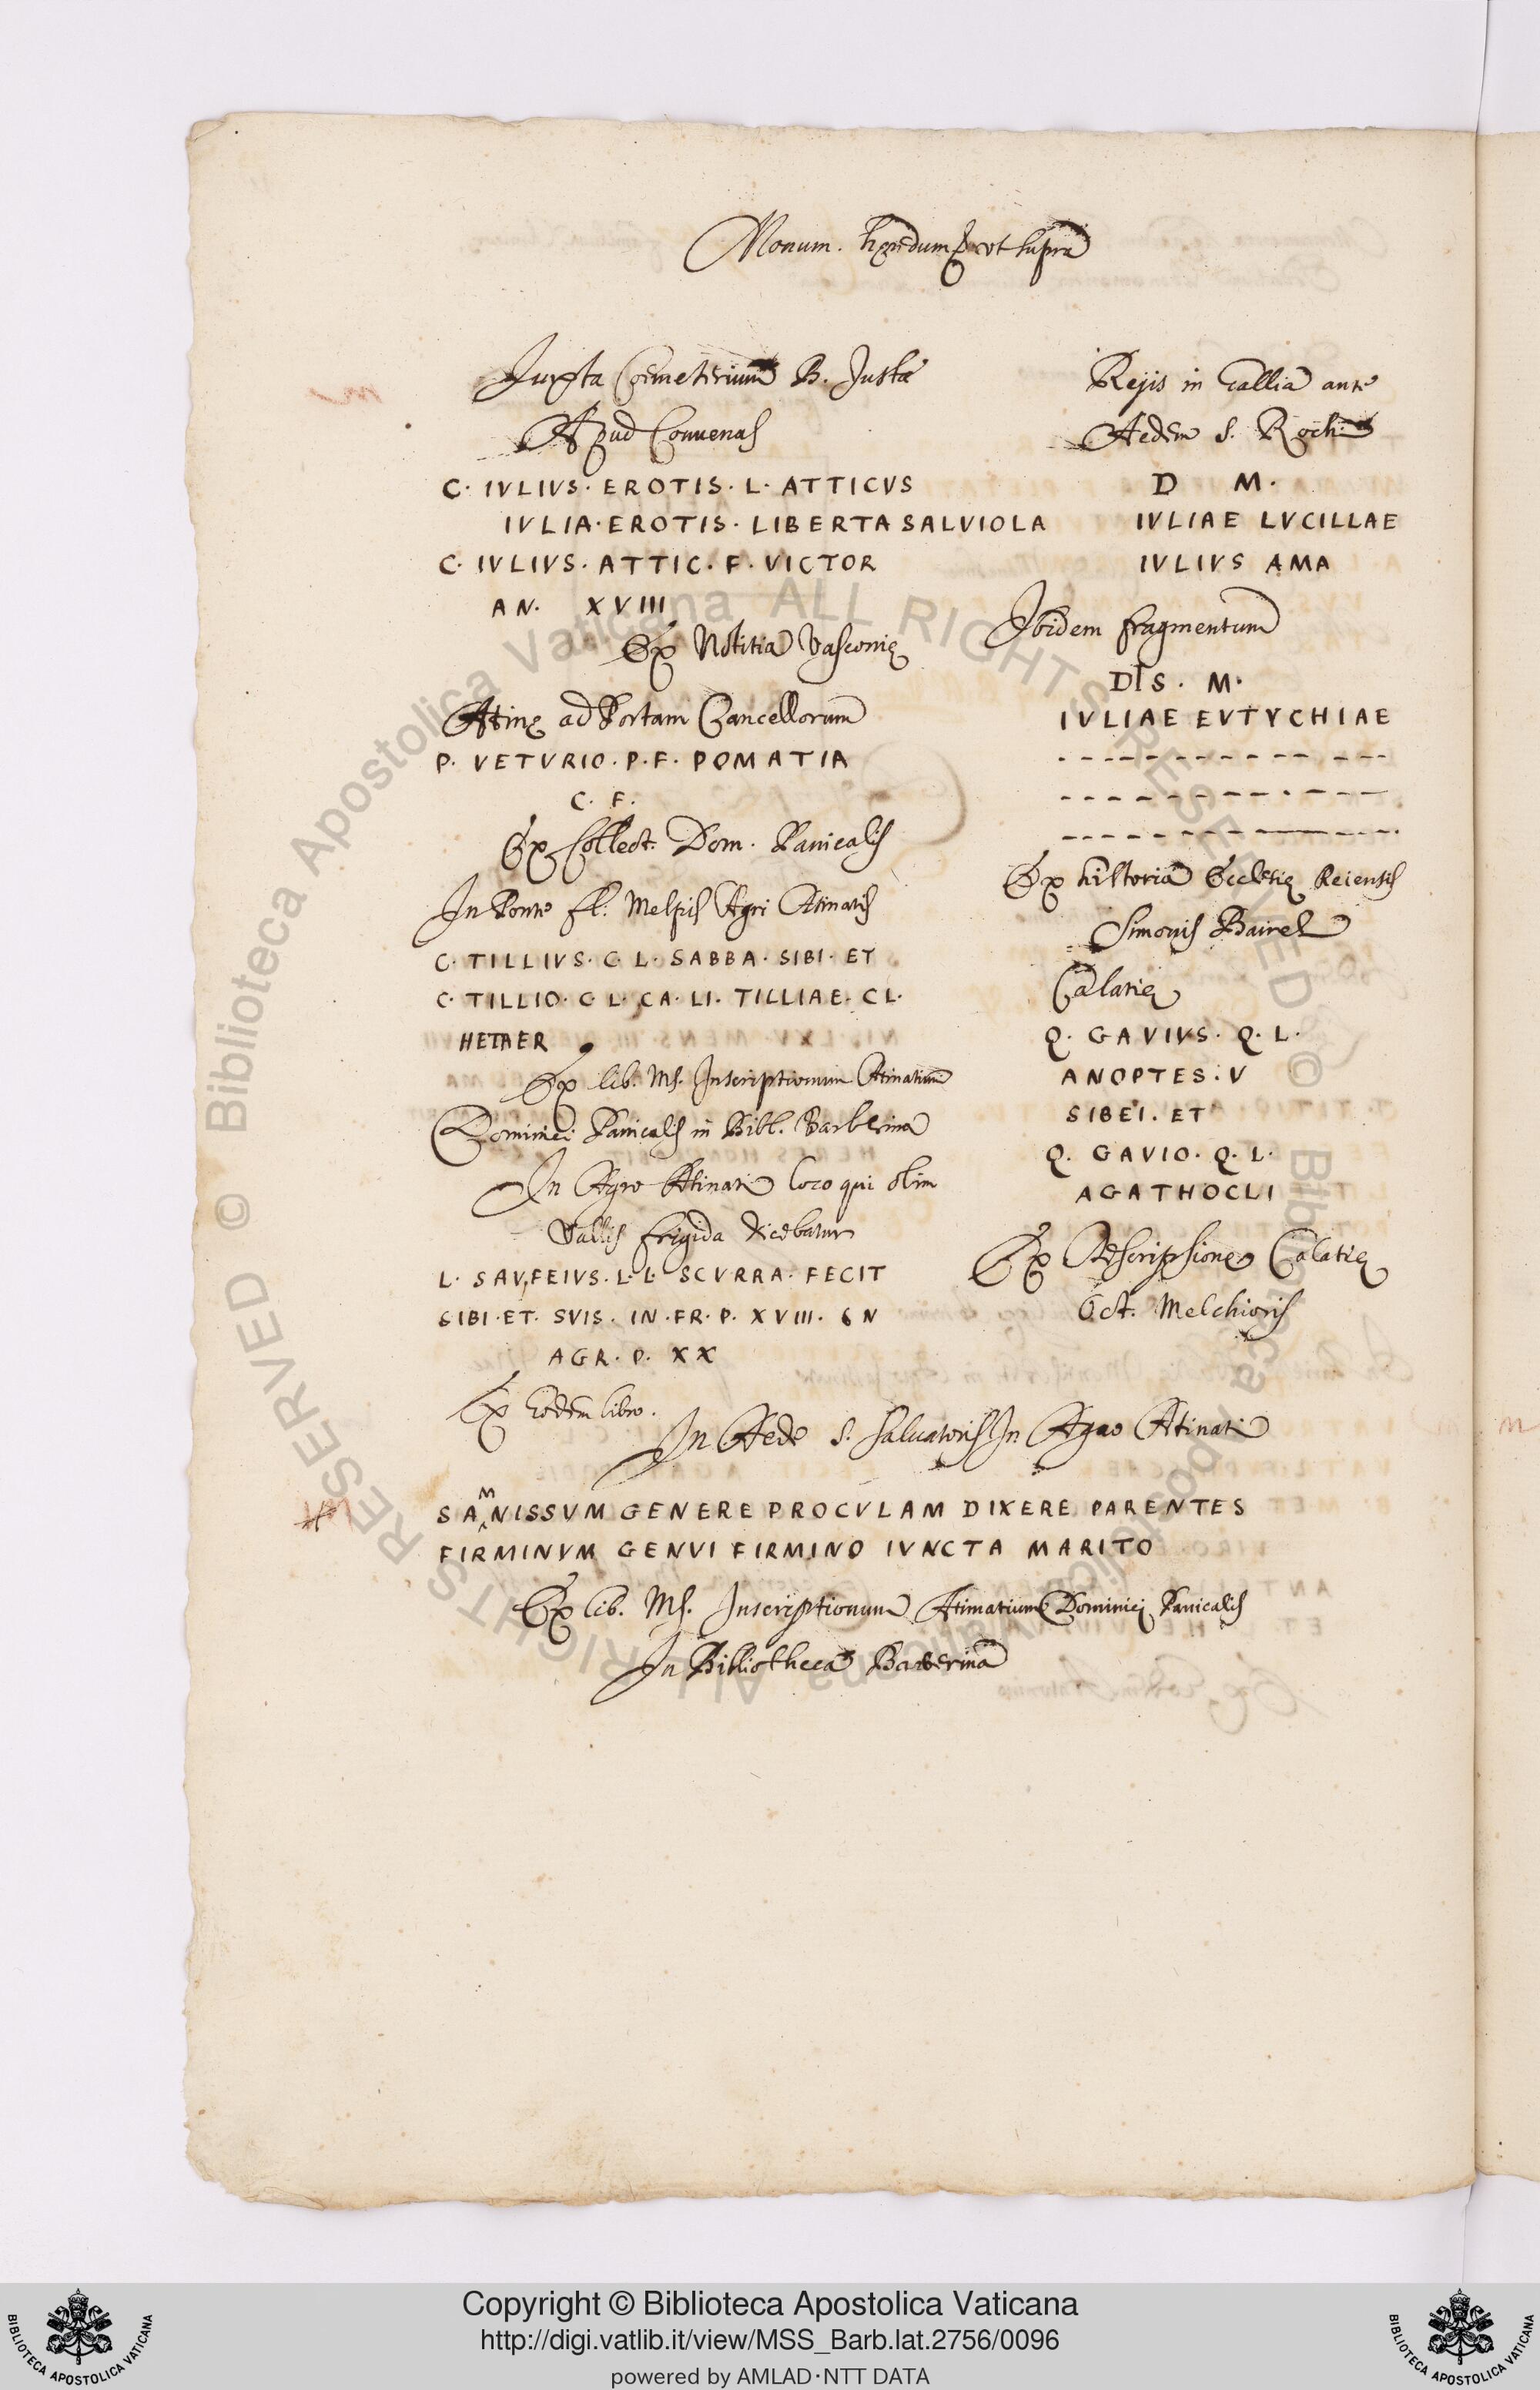 Monum. hęredum & vt supra
Juxta Coemeterium B. Justæ
Apud Conuenas
C. IVLIVS. EROTIS. L. ATTICVS
IVLIA. EROTIS. LIBERTA SALVIOLA
C. IVLIVS. ATTIC. F. VICTOR
AN. XVIII
Ex Notitia Vasconię
Atinę ad Portam Cancellorum
P. VETVRIO. P. F. POMATIA
C. F.
Ex Collect. Dom. Panicalis
In Ponte fl. Melpis Agri Atinatis
C. TILLIVS. C L. SABBA. SIBI. ET
C. TILLIO. C L. CA. LI. TILLIAE. CL.
HETAER
Ex lib. Ms. Inscriptionum Atinatium
Dominici Panicalis in Bibl. Barberina
In Agro Atinati loco qui olim
Vallis frigida dicebatur
L. SAVFEIVS. L. L. SCVRRA. FECIT
SIBI. ET. SVIS. IN. FR. P. XVIII. 6 N
AGR. P. XX
Ex eodem libro.
Rejis in Gallia ante
Aedem S. Rochi
D M.
IVLIAE LVCILLAE
IVLIVS AMA
Ibidem fragmentum
DIS. M.
IVLIAE EVTYCHIAE
- - - - - - - - - - - - - -
- - - - - - - - - - - - - -
- - - - - - - - - - - - - -
Ex historia Ecclesię Reiensis
Simonis
Calatię
Q. GAVIVS. Q. L.
ANOPTES. V
SIBEI. ET
Q. GAVIO. Q. L.
AGATHOCLI
Ex Descripsione Calatię
Oct. Melchioris
In Aede S. Saluatoris In Agro Atinati
SAMNISSVM GENERE PROCVLAM DIXERE PARENTES
FIRMINVM GENVI FIRMINO IVNCTA MARITO
Ex lib. Ms. Inscriptionum Atinatium Dominici Panicalis
In Bibliotheca Barberina
© Biblioteca Apostolica Vaticana ALL RIGHTS RESERVED © Biblioteca Apostolica Vaticana ALL RIGHTS RESERVED
BIBLIOTECA APOSTOLICA VATICANA
Copyright © Biblioteca Apostolica Vaticana
http://digi.vatlib.it/view/MSS_Barb.lat.2756/0096
powered by AMLAD·NTT DATA
BIBLIOTECA APOSTOLICA VATICANA